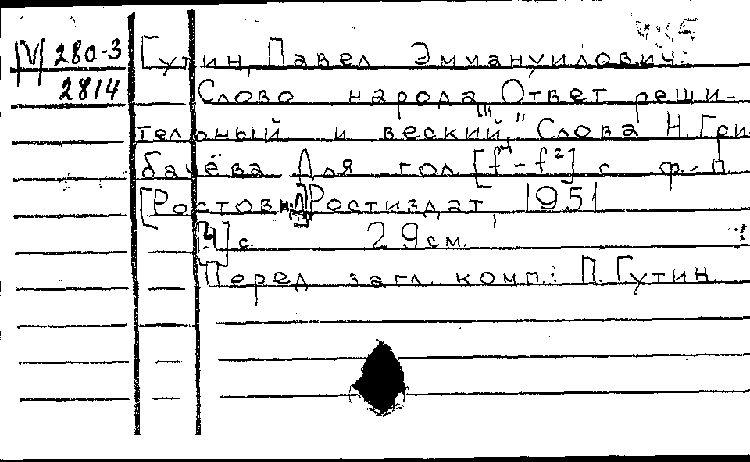 М 280-3
2814
Гутин, Павел Эммануилович.
Слово народа "Ответ реши-
тельный и веский". Слова Н. Гри-
бачёва Для гол [f¹-f²] с ф.-п.
[Ростов н/Д] Ростиздат, 1951
[4] с. 29 см.
Перед загл. комп.: П. Гутин